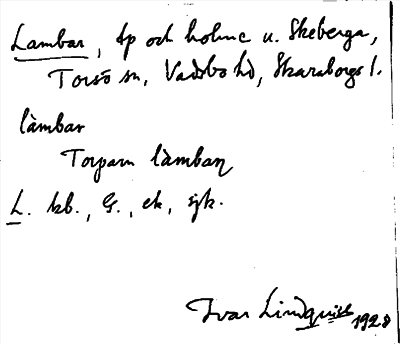 Lambar, tp och holme u. Skeberga,
Torsö sn, Vadsbo hd, Skaraborgs l.
làmbar
Torparn làmbaɳ
L. kb., G., ek, sjk.
Ivar Lindquist 1928